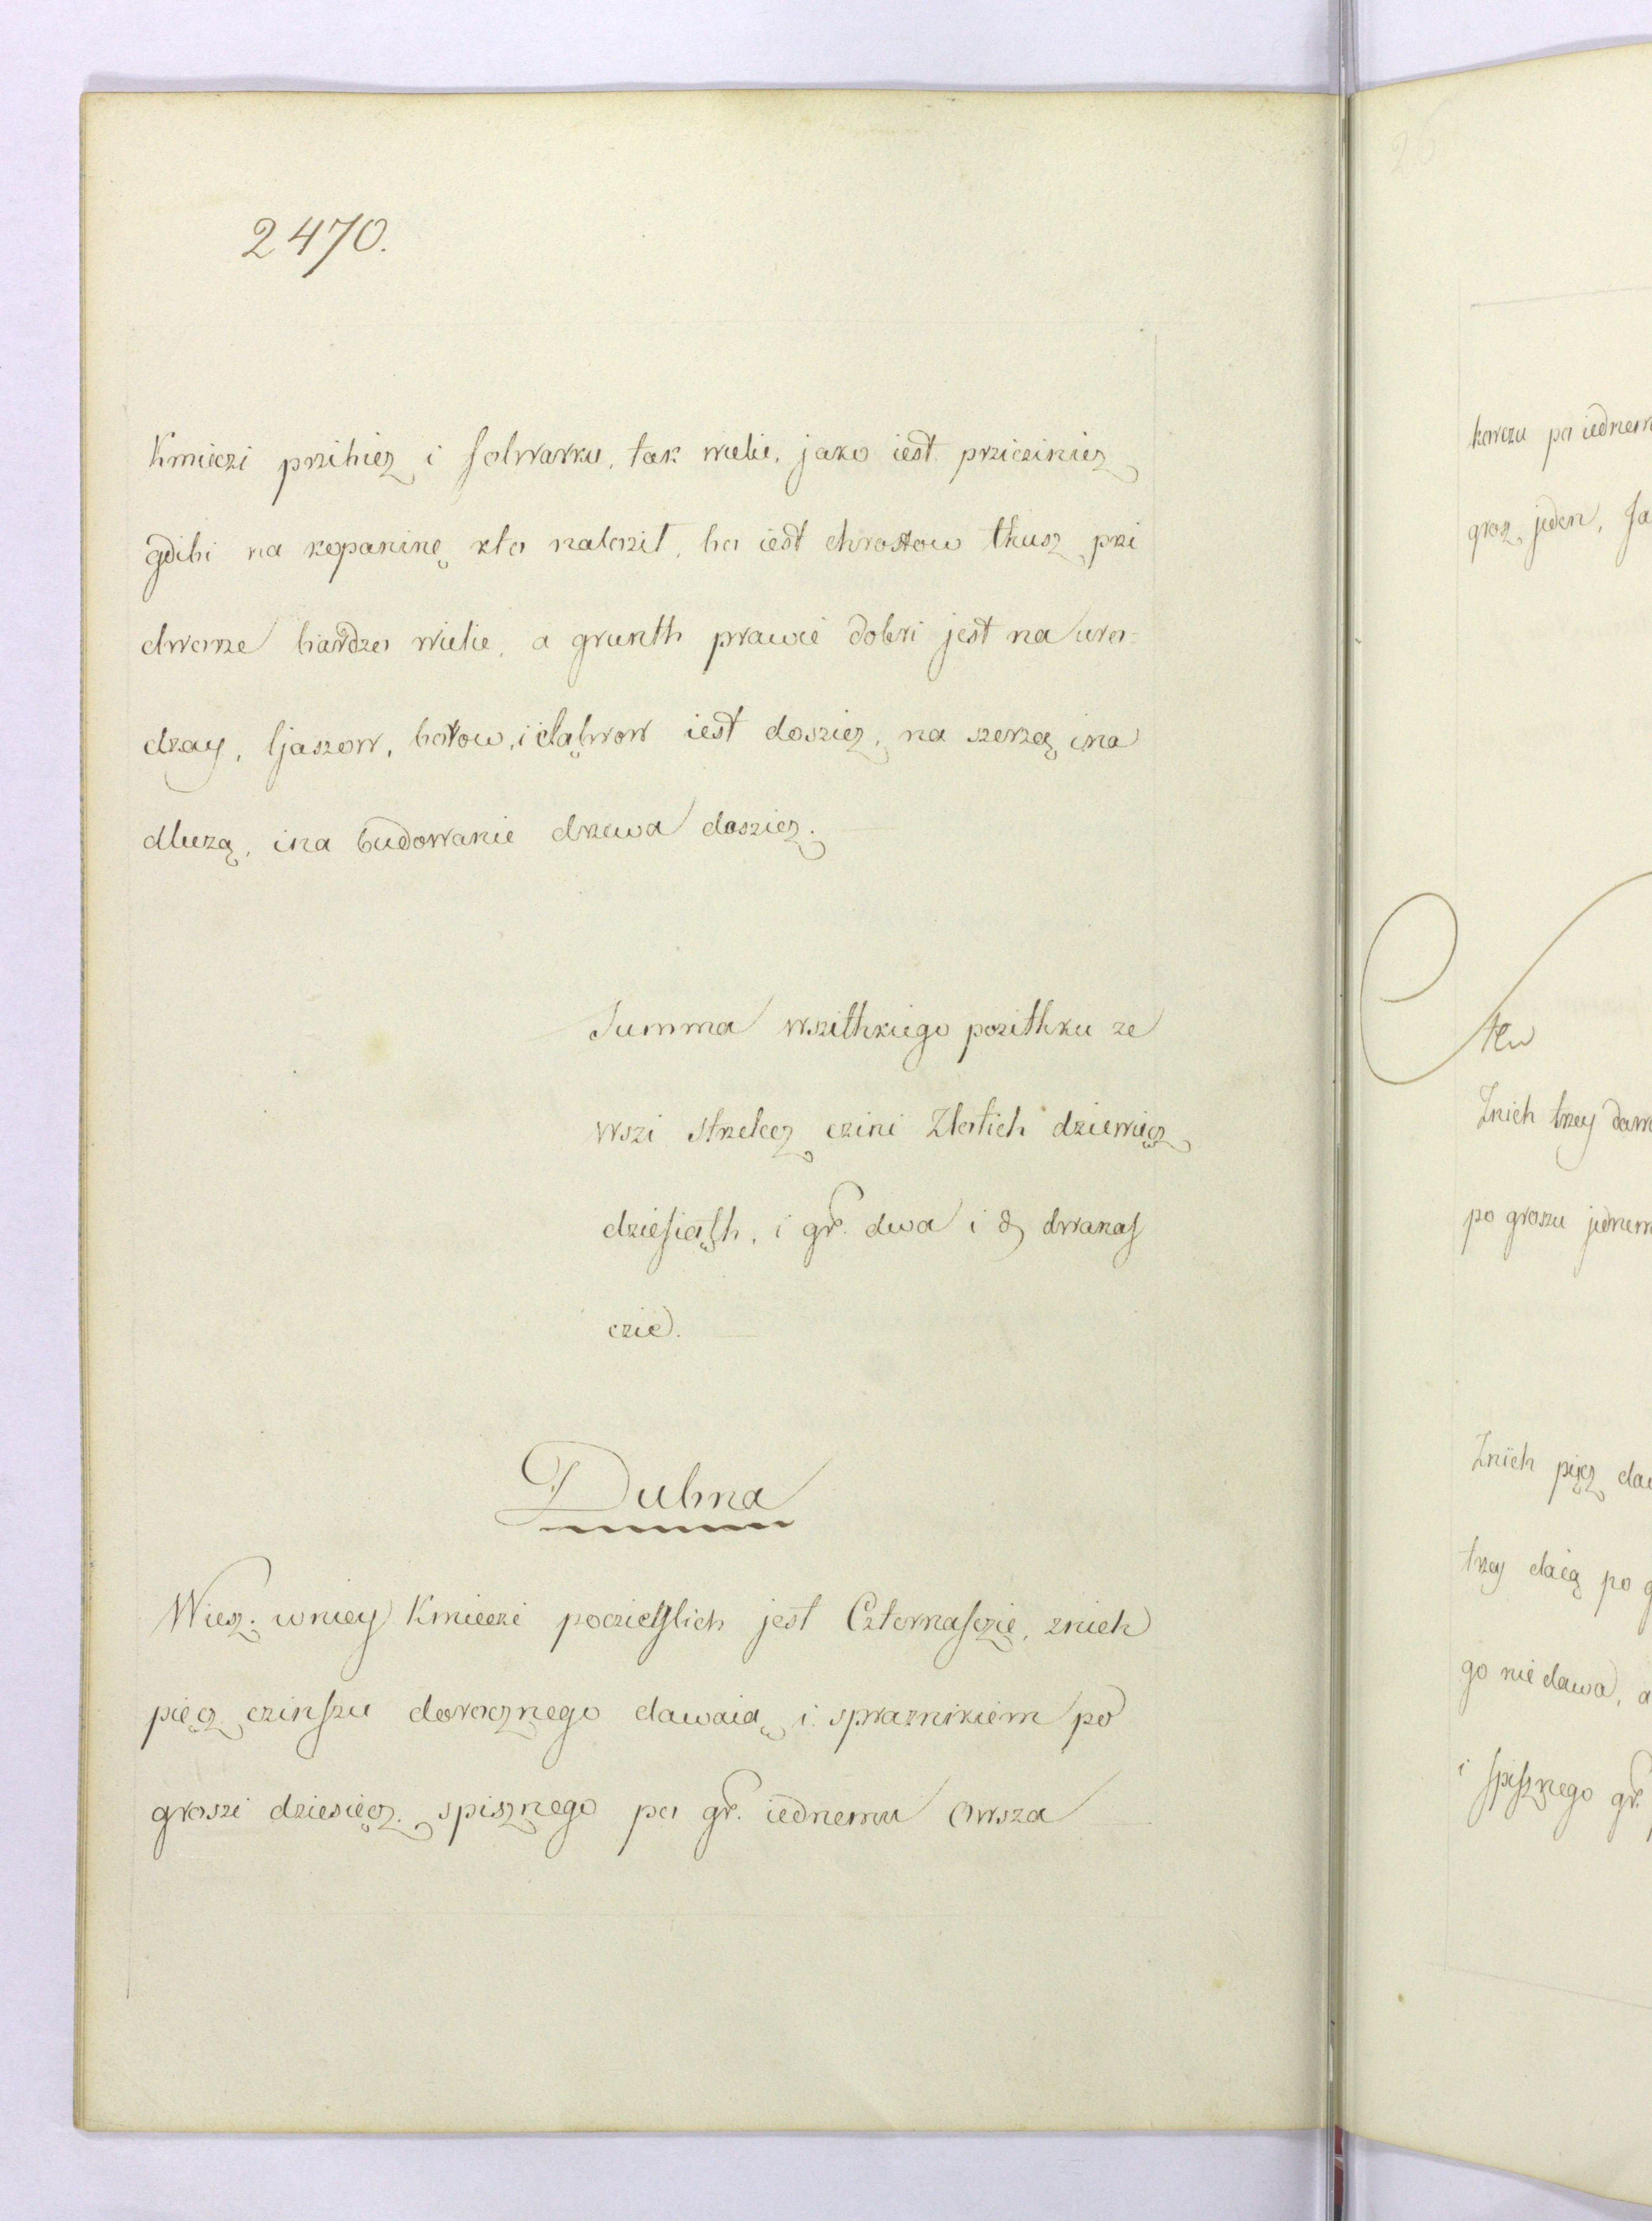 2470.
Kmieczi przibiez i folwarku, tak wielie, jako iest przicziniez
gdibi na kopaninę kto nalozil, bo iest chrostow thusz pri
dworze bardzo wielie, a grunth prawie dobri jest na uro-
dzay, ljaszow, borow, i dąbrow iest dosziez, na szerzą ina
dluzą, ina budowanie drzewa dosziez.
Summa wszithkiego pozithku ze
wszi Strzelcz czini Zlotich dziewięcz
dziesiąth, i gr. dwa i dwanas
czie.
Dubna
Wiesz. wniey Kmieczi poczieslich jest Czternasczie, znich
pięcz czinszu dorocznego dawaią i spraznikiem po
groszi dziesięcz. spisznego po gr. iednemu owsza
korczu po iednem
grosz jeden,
Znich trzey
po groszu jednem
Znich pięcz
trzy daią po
go nie dawa, a
i spisznego gr.